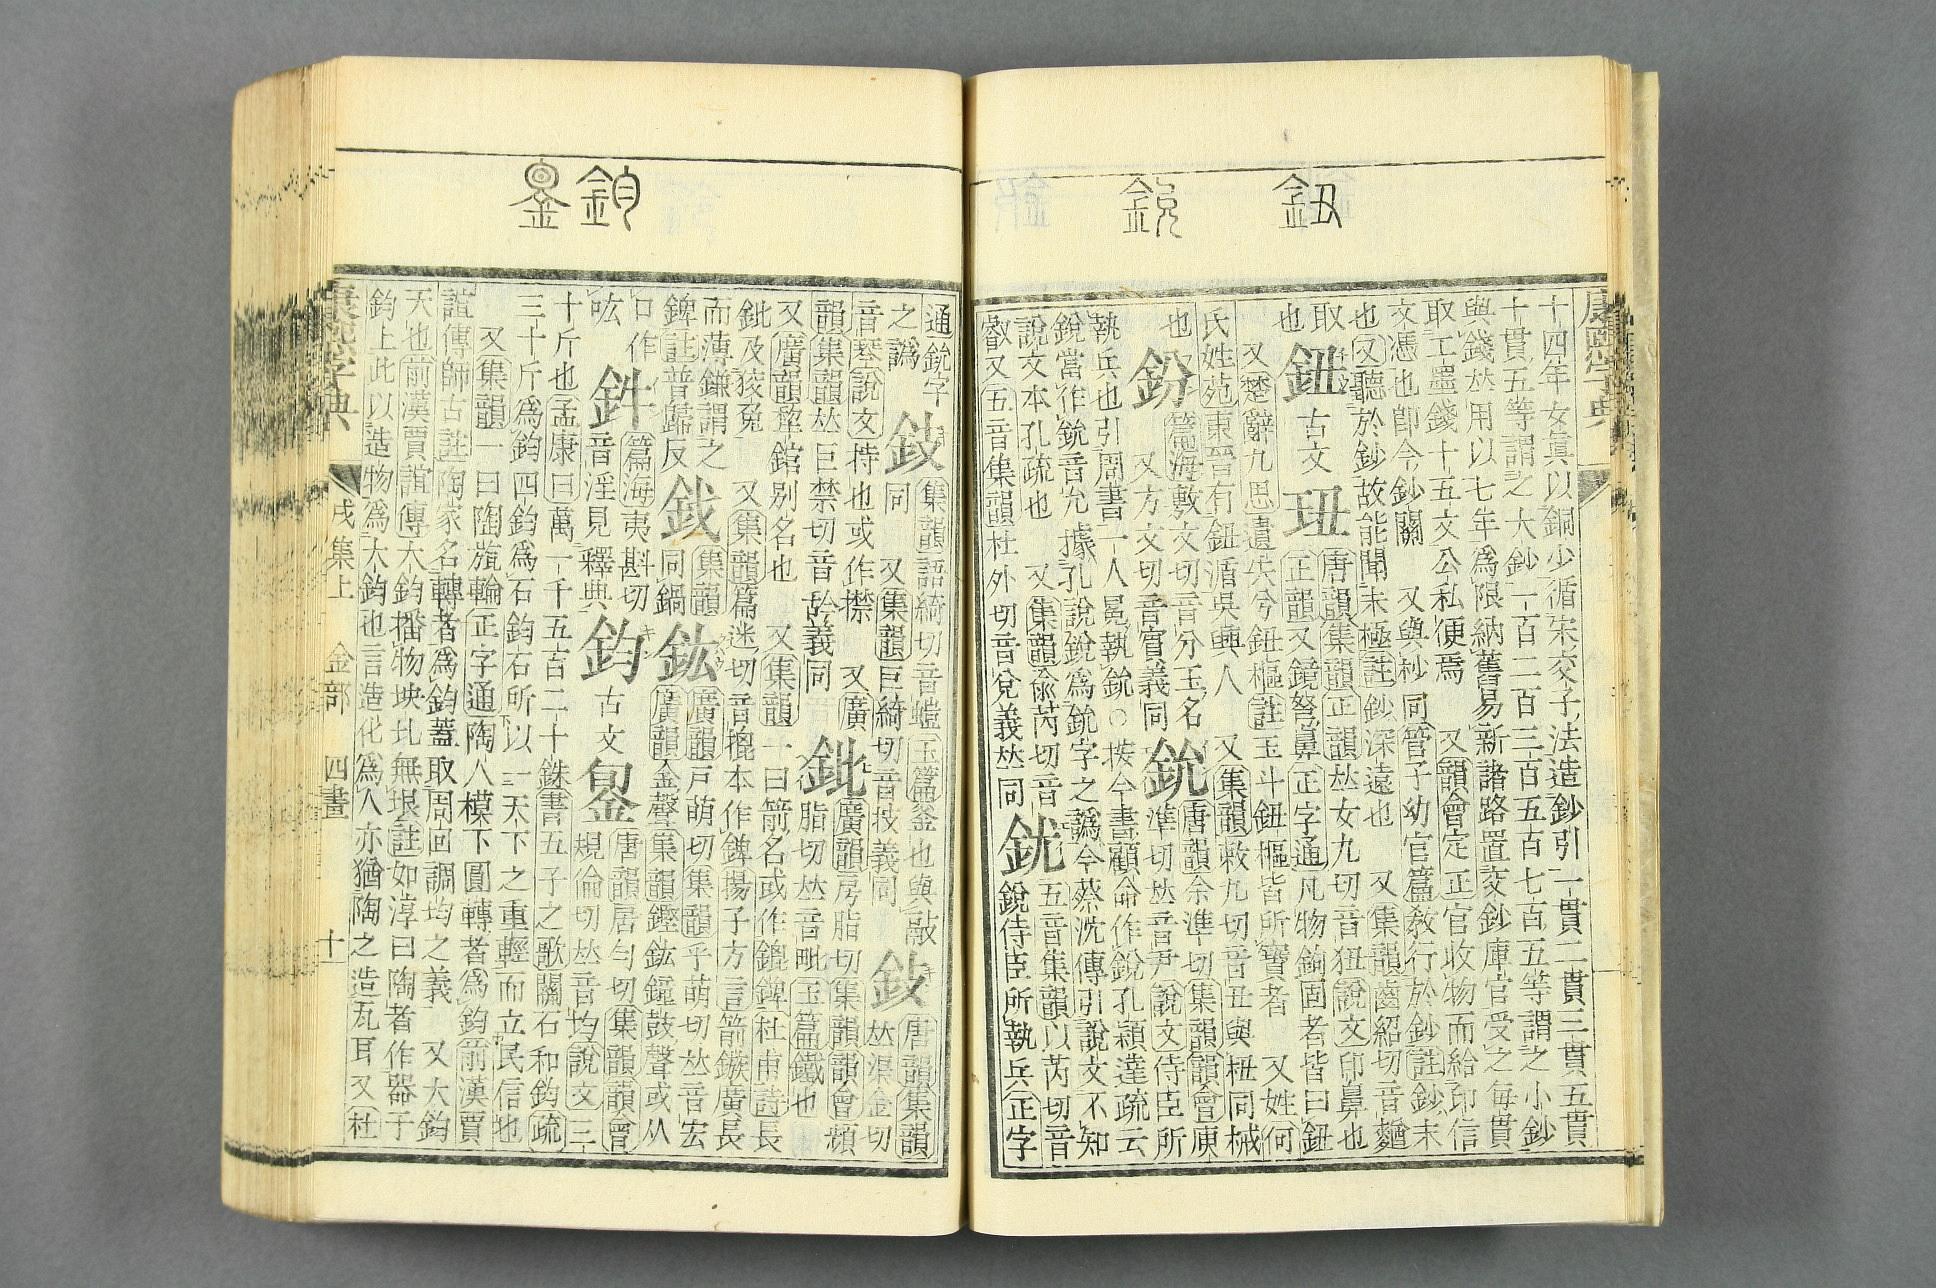 鈕
銳
康熙字典
十四年女眞以銅少循宋交子法造鈔引一貫二貫三貫五貫
十貫五等謂之大鈔一百二百三百五百七百五等謂之小鈔
與錢𠀤用以七年爲限納舊易新諸路置交鈔庫官受之每貫
取工墨錢十五文公私便焉 又韻會定正官收物而給印信
文憑也卽今鈔關 又與杪同管子幼官篇敎行於鈔註鈔末
也又聽於鈔故能聞未極註鈔深遠也 又集韻齒紹切音麵
取
也
鈕 古文
唐韻集韻正韻𠀤女九切音狃說文印鼻也
正韻又鏡弩鼻正字通凡物鉤固者皆曰鈕
又楚辭九思遺失兮鈕樞註玉斗鈕樞皆所寶者 又姓何
氏姓苑東晉有鈕滔吳興人 又集韻敕九切音丑與杻同械
也
鈖
篇海敷文切音分玉名
又方文切音義同
鈗
唐韻余準切集韻韻會庾
準切𠀤音尹說文侍臣所
執兵也引周書一人冕執鈗○按今書顧命作銳孔穎達疏云
銳當作鈗音允據孔說銳爲鈗字之譌今蔡沈傳引說文不知
說文本孔疏也 又集韻兪芮切音
叡又五音集韻杜外切音兌義𠀤同
五音集韻以芮切音
銳侍臣所執兵正字
鈞
通鈗字
之譌
鈘
集韻語綺切音螘玉篇釜也與敲
同 又集韻巨綺切音技義同
鈙
唐韻集韻
𠀤渠金切
音琴說文持也或作捦 又廣
韻集韻𠀤巨禁切音䪩義同
鈚
廣韻房脂切集韻韻會頻
脂切𠀤音毗玉篇鐵也
又廣韻犂錧別名也 又集韻一曰箭名或作錍錍杜甫詩長
鈚及狡兔 又集韻篇迷切音㨢本作錍揚子方言箭鏃廣長
而薄鎌謂之
錍註普歸反
鈛
集韻
同鍋
鈜
廣韻戸萌切集韻乎萌切𠀤音宏
廣韻金聲集韻鏗鈜鐘鼓聲或从
口作
吰
篇海夷斟切
音淫見釋典
鈞 古文
唐韻居勻切集韻韻會
規倫切𠀤音均說文三
十斤也孟康曰萬一千五百二十銖書五子之歌關石和鈞疏
三十斤爲鈞四鈞爲石鈞石所以一天下之重輕而立民信也
又集韻一曰陶旊輪正字通陶人模下圓轉者爲鈞前漢賈
誼傳師古註陶家名轉者爲鈞蓋取周回調均之義 又大鈞
天也前漢賈誼傳大鈞播物坱圠無垠註如淳曰陶者作器于
鈞上此以造物爲大鈞也言造化爲人亦猶陶之造瓦耳又杜
康熙字典 戌集上 金部 四畫 十